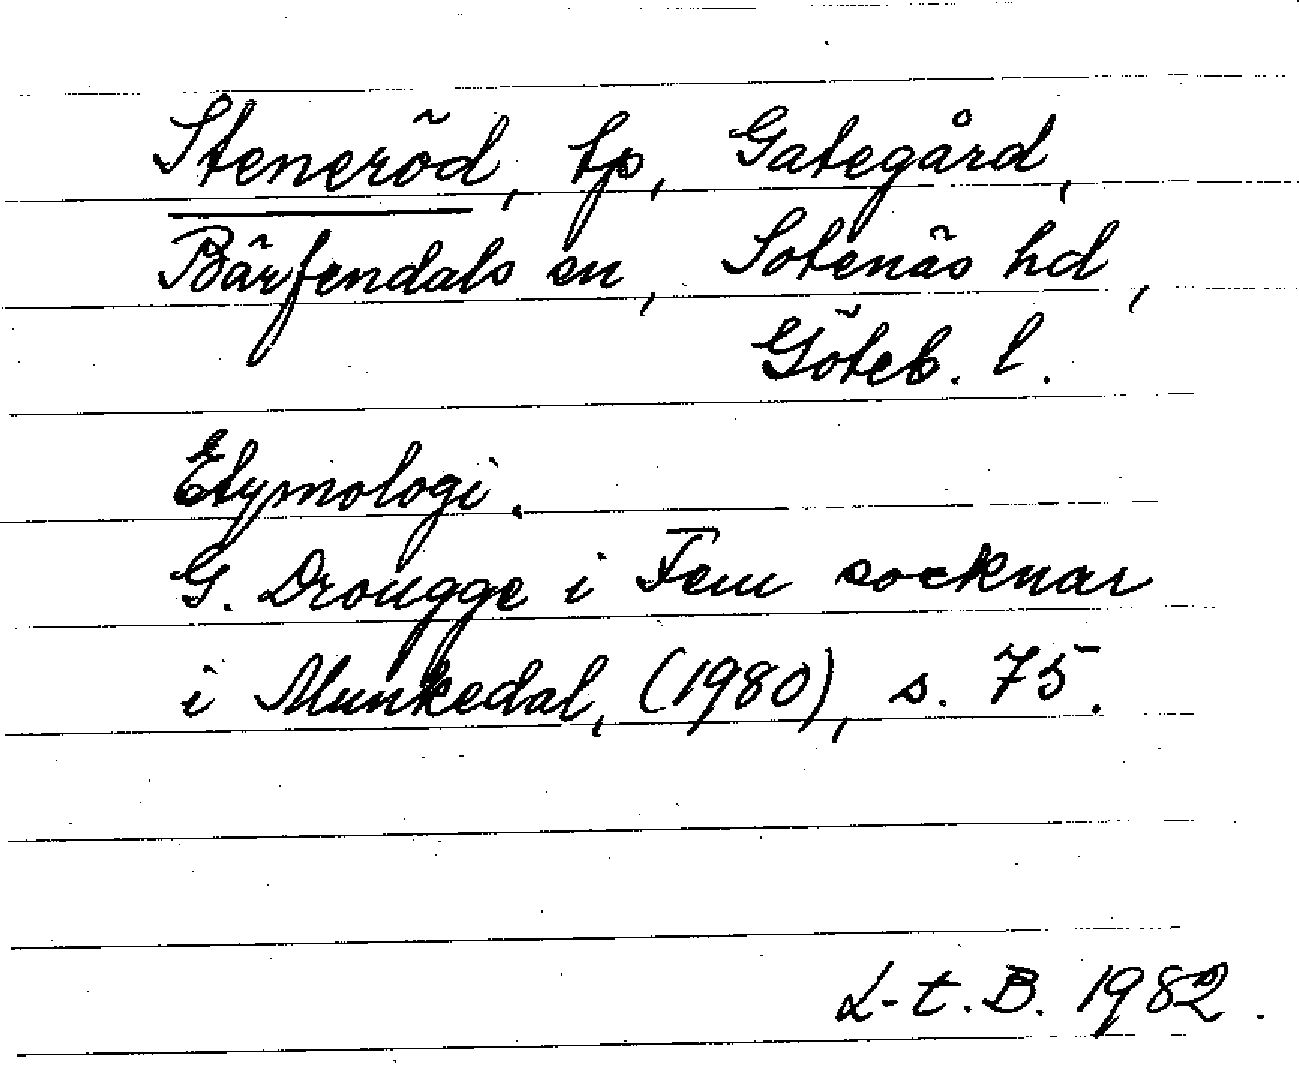 Steneröd, tp, Gategård,
Bärfendals sn, Sotenäs hd,
Göteb. l.
Etymologi.
G. Drougge i Fem socknar
i Munkedal, (1980), s. 75.
L-t. B. 1982.